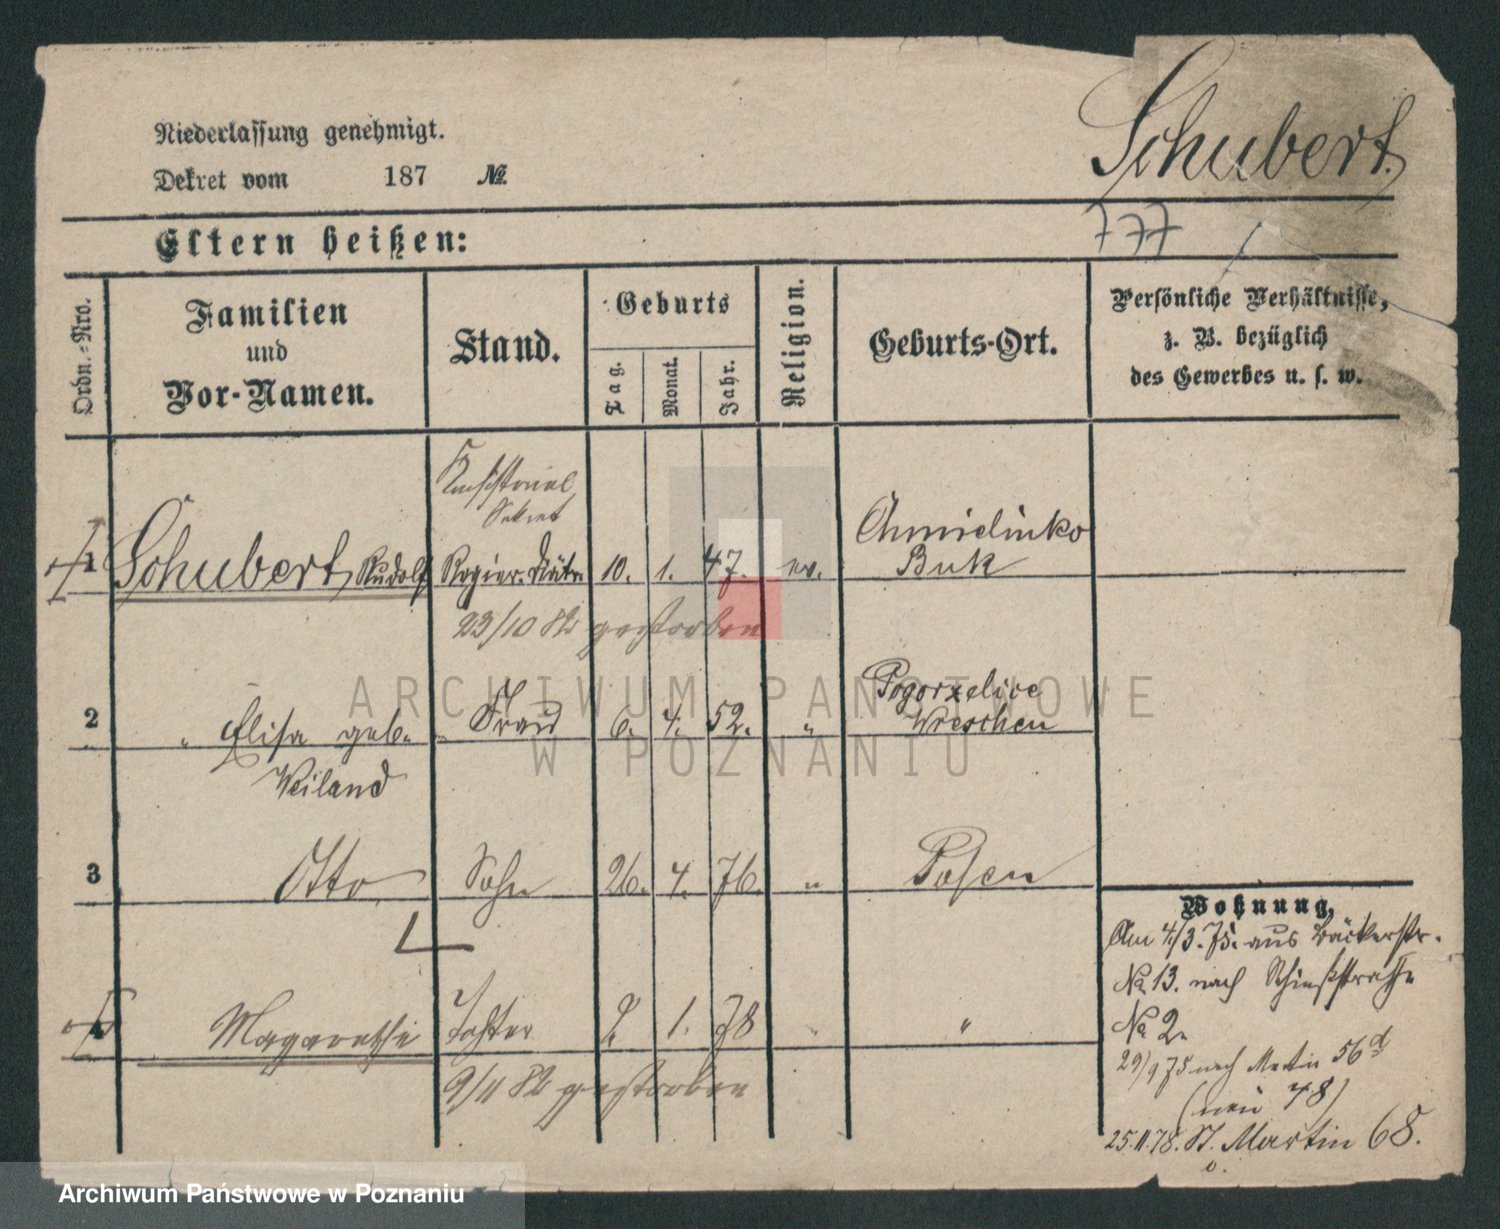 Schubert.
Niederlassung genehmigt.
Dekret vom 187 №.
777
Eltern heißen:
Ordn.-Nro.
Familien
und
Vor-Namen.
Stand.
Geburts
Tag.
Monat.
Jahr.
Religion.
Geburts-Ort.
Persönliche Verhältnisse,
z. B. bezüglich
des Gewerbes u. s. w.
Consistorial
Sekret
1 Schubert, Rudolf 10. 1. 47. ev. Chmielinko
Buk
23/10 82 gestorben
2 " Elisa geb. Frau 6. 4. 52. " Pogorzelice
Wreschen
Weiland
3 Otto Sohn 26. 4. 76. " Posen
4 Magarethe Tochter 2. 1. 78 " "
9/11 82 gestorben
Wohnung,
Am 4/3. 75. aus Bäckerstr.
No 13. nach Schießstraße
No 2.
29/9 75 nach Martin 56d
(neu 48)
25.11.78. St. Martin 68.
ARCHIWUM PAŃSTWOWE
W POZNANIU
Archiwum Państwowe w Poznaniu